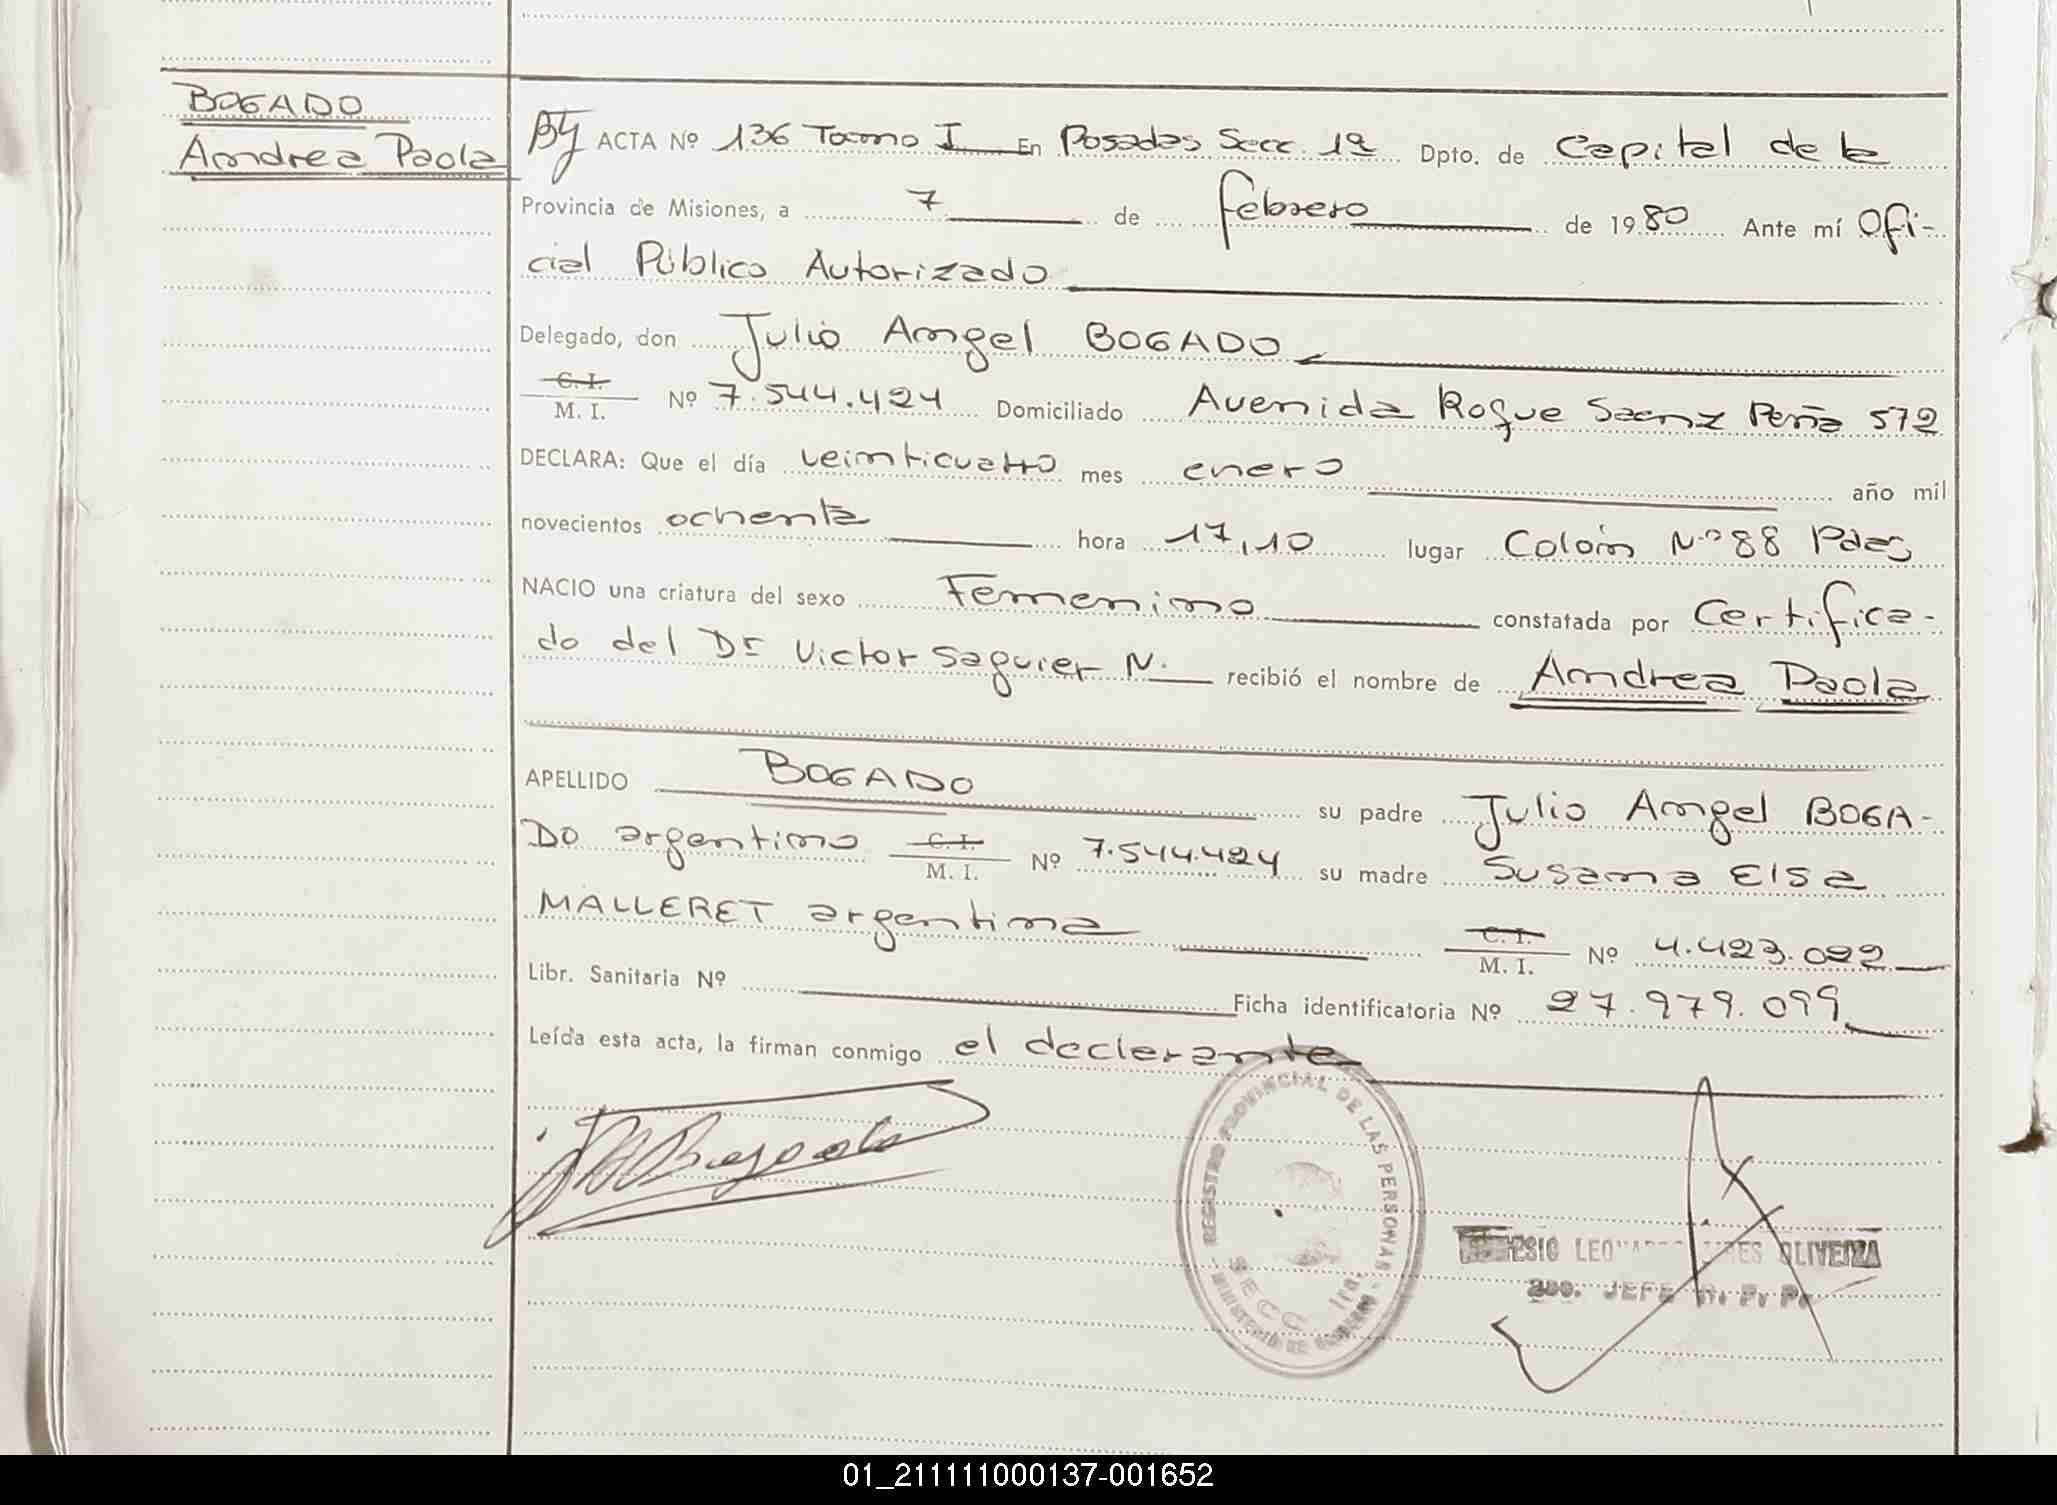 BOGADO
Andrea Paola
ACTA Nº 136 Tomo I En Posadas Secc. 1ª Dpto. de Capital de la
Provincia de Misiones, a 7 de febrero de 1980 Ante mí Ofi-
cial Público Autorizado
Delegado, don Julio Angel BOGADO
C.I.
M. I. Nº 7.544.424 Domiciliado Avenida Roque Saenz Peña 572
DECLARA: Que el día veinticuatro mes enero año mil
novecientos ochenta hora 17,10 lugar Colón Nº 88 Pdas
NACIO una criatura del sexo Femenino constatada por Certifica-
do del Dr Victor Saguier N. recibió el nombre de Andrea Paola
APELLIDO BOGADO su padre Julio Angel BOGA-
DO argentino C.I. M. I. Nº 7.544.424 su madre Susana Elsa
MALLERET argentina C.I. M. I. Nº 4.423.022
Libr. Sanitaria Nº Ficha identificatoria Nº 27.979.099
Leída esta acta, la firman conmigo el declarante
REGISTRO PROVINCIAL DE LAS PERSONAS
SECC. 1ra.
MINISTERIO DE GOBIERNO
OLIVEIRA
JEFE
01_211111000137-001652